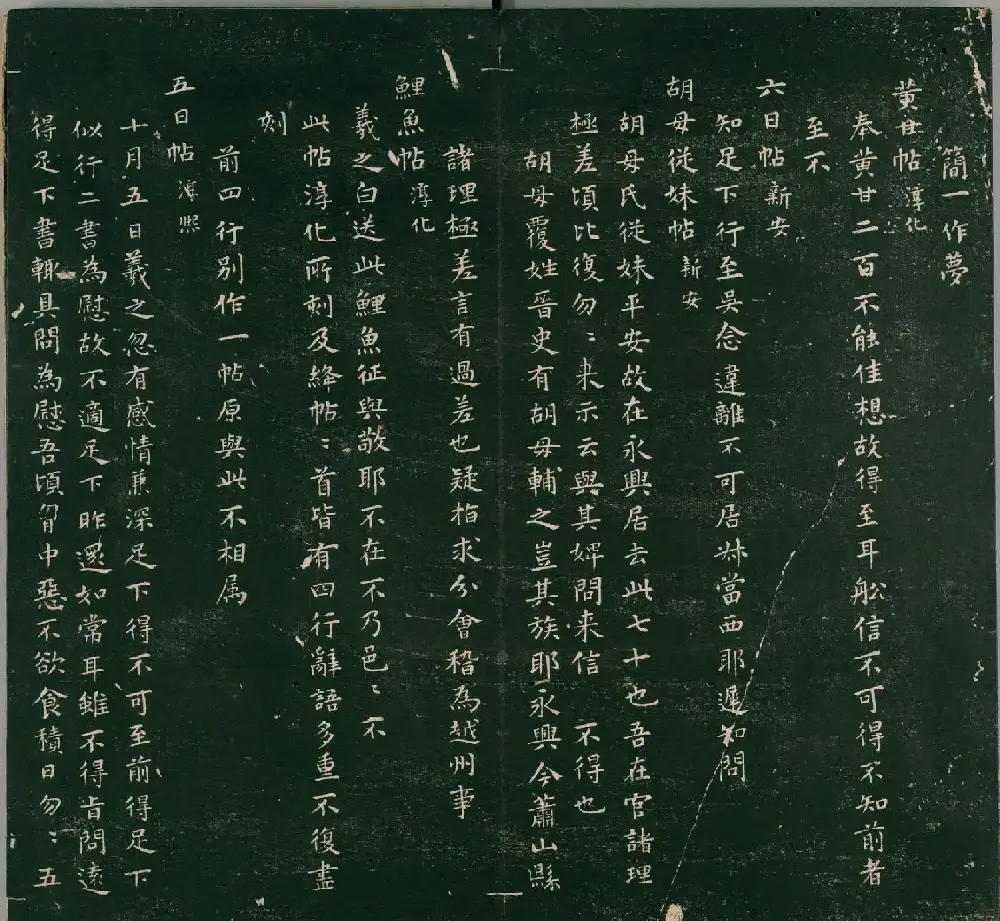 簡一作夢
黃甘帖 淳化
奉黃甘二百不能佳想故得至耳舩信不可得不知前者
至不
六日帖 新安
知足下行至吳念違離不可居叔當西耶遲知問
胡母從妹帖 新安
胡母氏從妹平安故在永興居去此七十也吾在官諸理
極差頃比復勿〻来示云與其婢問来信 不得也
胡母覆姓晉史有胡母輔之豈其族耶永興今蕭山縣
諸理極差言有過差也疑指求分會稽為越州事
鯉魚帖 淳化
羲之白送此鯉魚征與敬耶不在不乃邑〻不
此帖淳化所刻及絳帖〻首皆有四行辭語多重不復盡
刻
前四行別作一帖原與此不相属
五日帖 淳熙
十月五日羲之忽有感情兼深足下得不可至前得足下
似行二書為慰故不適足下昨還如常耳雖不得肯問遠
得足下書輙具問為慰吾頃胷中惡不欲食積日勿〻五